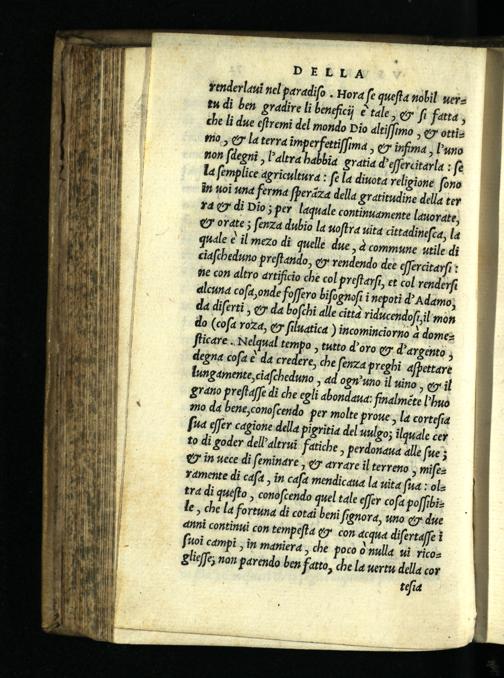 DELLA
renderlaui nel paradiso . Hora se questa nobil uer-
tu di ben gradire li beneficij è tale , & si fatta ,
che li due estremi del mondo Dio altissimo , & otti-
mo , & la terra imperfettissima , & infima , l'uno
non sdegni , l'altra habbia gratia d'essercitarla : se
la semplice agricultura : se la diuota religione sono
in uoi una ferma sperãza della gratitudine della ter
ra & di Dio ; per laquale continuamente lauorate,
& orate ; senza dubio la uostra uita cittadinesca, la
quale è il mezo di quelle due , à commune utile di
ciascheduno prestando, & rendendo dee essercitarsi :
ne con altro artificio che col prestarsi, et col rendersi
alcuna cosa,onde fossero bisognosi i nepoti d'Adamo,
da diserti , & da boschi alle città riducendosi,il mon
do (cosa roza, & siluatica ) incominciorno à dome-
sticare . Nelqual tempo , tutto d'oro & d'argento ,
degna cosa è da credere, che senza preghi aspettare
lungamente,ciascheduno , ad ogn'uno il uino , & il
grano prestasse di che egli abondaua: finalmẽte l'huo
mo da bene,conoscendo per molte proue , la cortesia
sua esser cagione della pigritia del uulgo; ilquale cer
to di goder dell'altrui fatiche , perdonaua alle sue ;
& in uece di seminare , & arrare il terreno , mise-
ramente di casa , in casa mendicaua la uita sua : ol-
tra di questo , conoscendo quel tale esser cosa possibi-
le , che la fortuna di cotai beni signora, uno & due
anni continui con tempesta & con acqua disertasse i
suoi campi , in maniera , che poco o nulla ui rico-
gliesse; non parendo ben fatto, che la uertu della cor
tesia